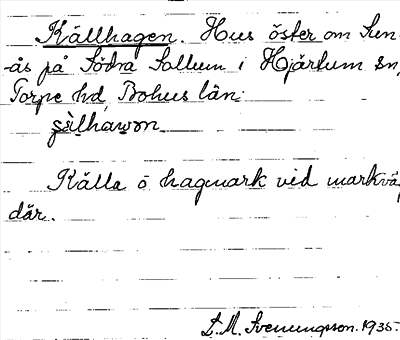 Källhagen. Hus öster om Sun-
ås på Södra Sollum i Hjärtum sn,
Torpe hd, Bohus län.
Källa o hagmark vid
där.
L. M. Svenungsson. 1935.